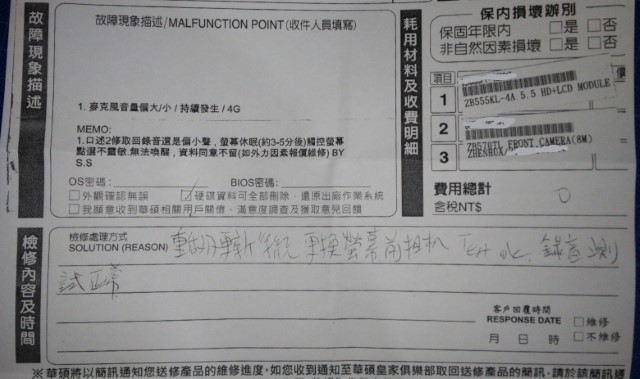 故障現象描述
故障現象描述/MALFUNCTION POINT(收件人員填寫)
1. 麥克風音量偏大/小 / 持續發生 / 4G
MEMO:
1.口述2修取回錄音還是偏小聲 , 螢幕休眠(約3-5分後)觸控螢幕
點選不靈敏.無法喚醒 , 資料同意不留(如外力因素報價維修) BY
S.S
OS密碼:
BIOS密碼:
外觀確認無誤
硬碟資料可全部刪除、還原出廠作業系統
我願意收到華碩相關用戶關懷、滿意度調查及獲取意見回饋
耗用材料及收費明細
保內損壞辦別
保固年限內 是 否
非自然因素損壞 是 否
項目
1
ZB555KL-4A 5.5 HD+LCD MODULE
2
ZB570TL FRONT CAMERA(8M)
3
費用總計
含稅NT$
0
檢修內容及時間
檢修處理方式
SOLUTION (REASON)
更換螢幕前相機 Test ok, 錄音測
試正常
客戶回覆時間
RESPONSE DATE
維修
月 日 時
不維修
※華碩將以簡訊通知您送修產品的維修進度。如您收到通知至華碩皇家俱樂部取回送修產品的簡訊，請於該簡訊通